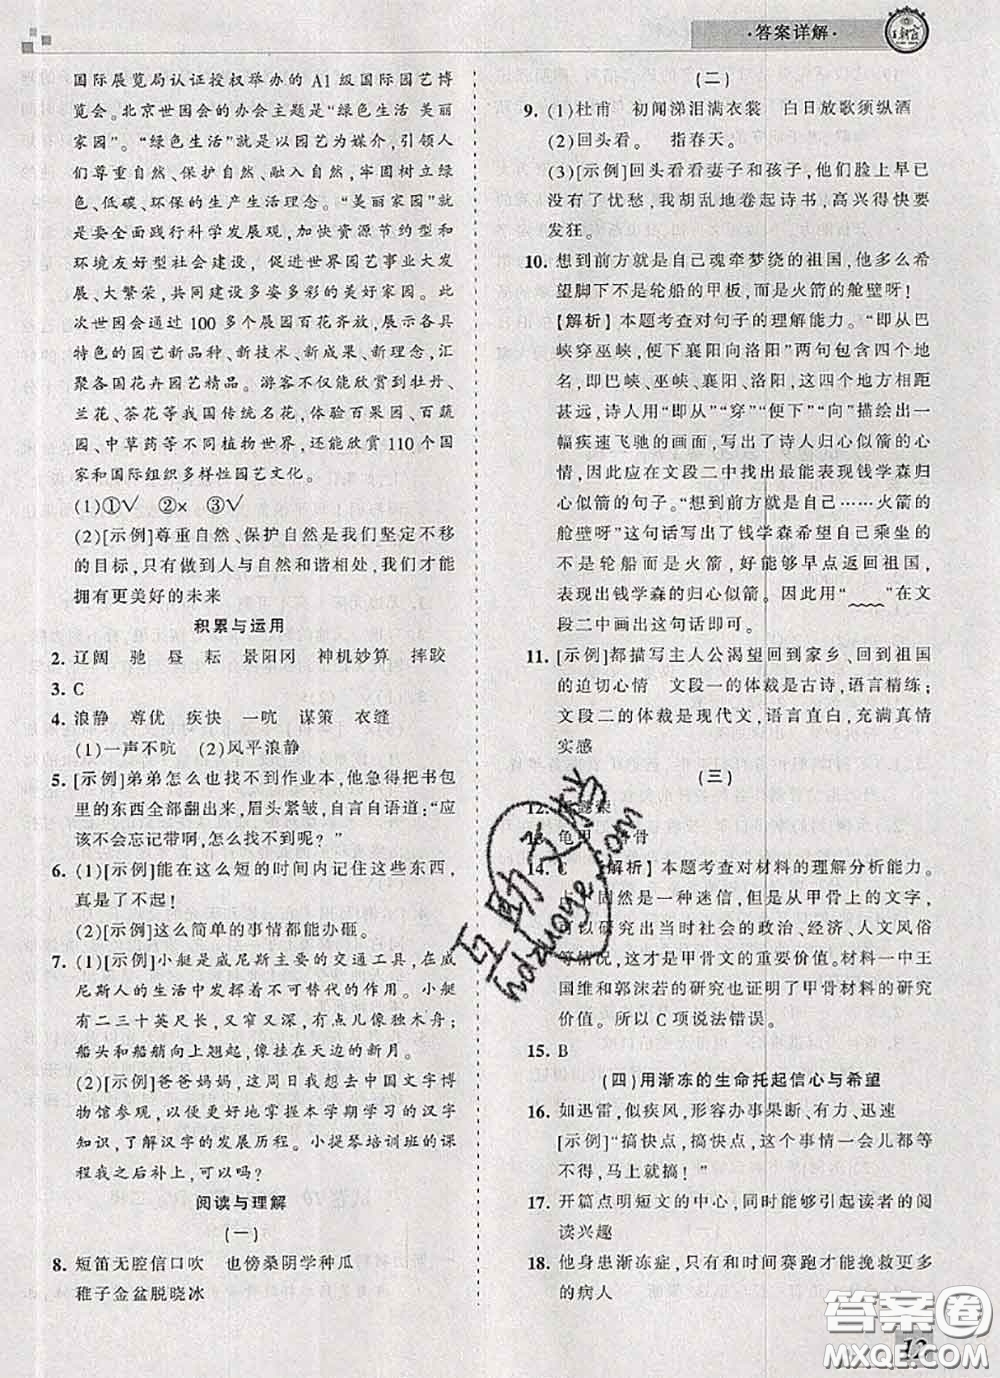 ·答案详解·
国际展览局认证授权举办的 A1 级国际园艺博
览会。北京世园会的办会主题是“绿色生活 美丽
家园”。“绿色生活”就是以园艺为媒介,引领人
们尊重自然、保护自然、融入自然,牢固树立绿
色、低碳、环保的生产生活理念。“美丽家园”就
是要全面践行科学发展观,加快资源节约型和
环境友好型社会建设,促进世界园艺事业大发
展、大繁荣,共同建设多姿多彩的美好家园。此
次世园会通过 100 多个展园百花齐放,展示各具
特色的园艺新品种、新技术、新成果、新理念,汇
聚各国花卉园艺精品。游客不仅能欣赏到牡丹、
兰花、茶花等我国传统名花,体验百果园、百蔬
园、中草药等不同植物世界,还能欣赏 110 个国
家和国际组织多样性园艺文化。
(1)①√ ②× ③√
(2)[示例]尊重自然、保护自然是我们坚定不移
的目标,只有做到人与自然和谐相处,我们才能
拥有更美好的未来
积累与运用
2. 辽阔 驰 昼 耘 景阳冈 神机妙算 摔跤
3. C
4. 浪静 尊优 疾快 一吭 谋策 衣缝
(1)一声不吭 (2)风平浪静
5. [示例]弟弟怎么也找不到作业本,他急得把书包
里的东西全部翻出来,眉头紧皱,自言自语道:“应
该不会忘记带啊,怎么找不到呢?”
6. (1)[示例]能在这么短的时间内记住这些东西,
真是了不起!
(2)[示例]这么简单的事情都能办砸。
7. (1)[示例]小艇是威尼斯主要的交通工具,在威
尼斯人的生活中发挥着不可替代的作用。小艇
有二三十英尺长,又窄又深,有点儿像独木舟;
船头和船艄向上翘起,像挂在天边的新月。
(2)[示例]爸爸妈妈,这周日我想去中国文字博
物馆参观,以便更好地掌握本学期学习的汉字
知识,了解汉字的发展历程。小提琴培训班的课
程我之后补上,可以吗?
阅读与理解
(一)
8. 短笛无腔信口吹 也傍桑阴学种瓜
稚子金盆脱晓冰
(二)
9. (1)杜甫 初闻涕泪满衣裳 白日放歌须纵酒
(2)回头看。 指春天。
(3)[示例]回头看看妻子和孩子,他们脸上早已
没有了忧愁,我胡乱地卷起诗书,高兴得快要
发狂。
10. 想到前方就是自己魂牵梦绕的祖国,他多么希
望脚下不是轮船的甲板,而是火箭的舱壁呀!
【解析】本题考查对句子的理解能力。“即从巴
峡穿巫峡,便下襄阳向洛阳”两句包含四个地
名,即巴峡、巫峡、襄阳、洛阳,这四个地方相距
甚远,诗人用“即从”“穿”“便下”“向”描绘出一
幅疾速飞驰的画面,写出了诗人归心似箭的心
情,因此应在文段二中找出最能表现钱学森归
心似箭的句子。“想到前方就是自己……火箭的
舱壁呀”这句话写出了钱学森希望自己乘坐的
不是轮船而是火箭,那样就能够早点返回祖国,
表现出钱学森的归心似箭。因此用“﹏﹏”在文
段二中画出这句话即可。
11. [示例]都描写主人公渴望回到家乡、回到祖国
的迫切心情 文段一的体裁是古诗,语言精练;
文段二的体裁是现代文,语言直白,充满真情
实感
(三)
12.
13. 龟甲 骨
14. C 【解析】本题考查对材料的理解分析能力。
固然是一种迷信,但是从甲骨上的文字,
可以研究出当时社会的政治、经济、人文风俗
等情况,这才是甲骨文的重要价值。材料一中王
国维和郭沫若的研究也印证了甲骨材料的研究
价值。所以 C 项说法错误。
15. B
(四)用渐冻的生命托起信心与希望
16. 如迅雷,似疾风,形容办事果断、有力、迅速
[示例]“搞快点,搞快点,这个事情一会儿都等
不得,马上就搞!”
17. 开篇点明短文的中心,同时能够引起读者的阅
读兴趣
18. 他身患渐冻症,只有和时间赛跑才能挽救更多
的病人
互助文档
hdzuoye.com
答案圈
MXQE.COM
12